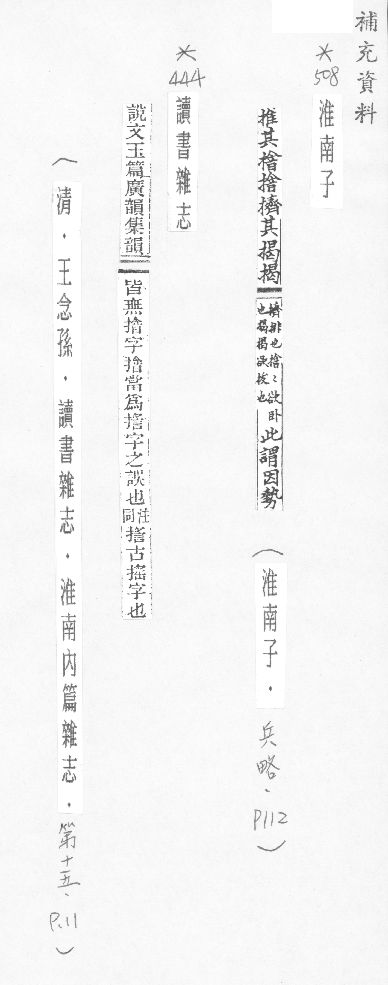 補充資料
*508 淮南子
推其摿摿擠其揭揭
擠排也摿〻欲卧
也揭揭欲拔也
此謂因勢
（淮南子．兵略．P112）
*444 讀書雜志
說文玉篇廣韻集韻
皆無摿字摿當為字之誤也
注同
古搖字也
（清．王念孫．讀書雜志．淮南內篇雜志．第十五．P.11）